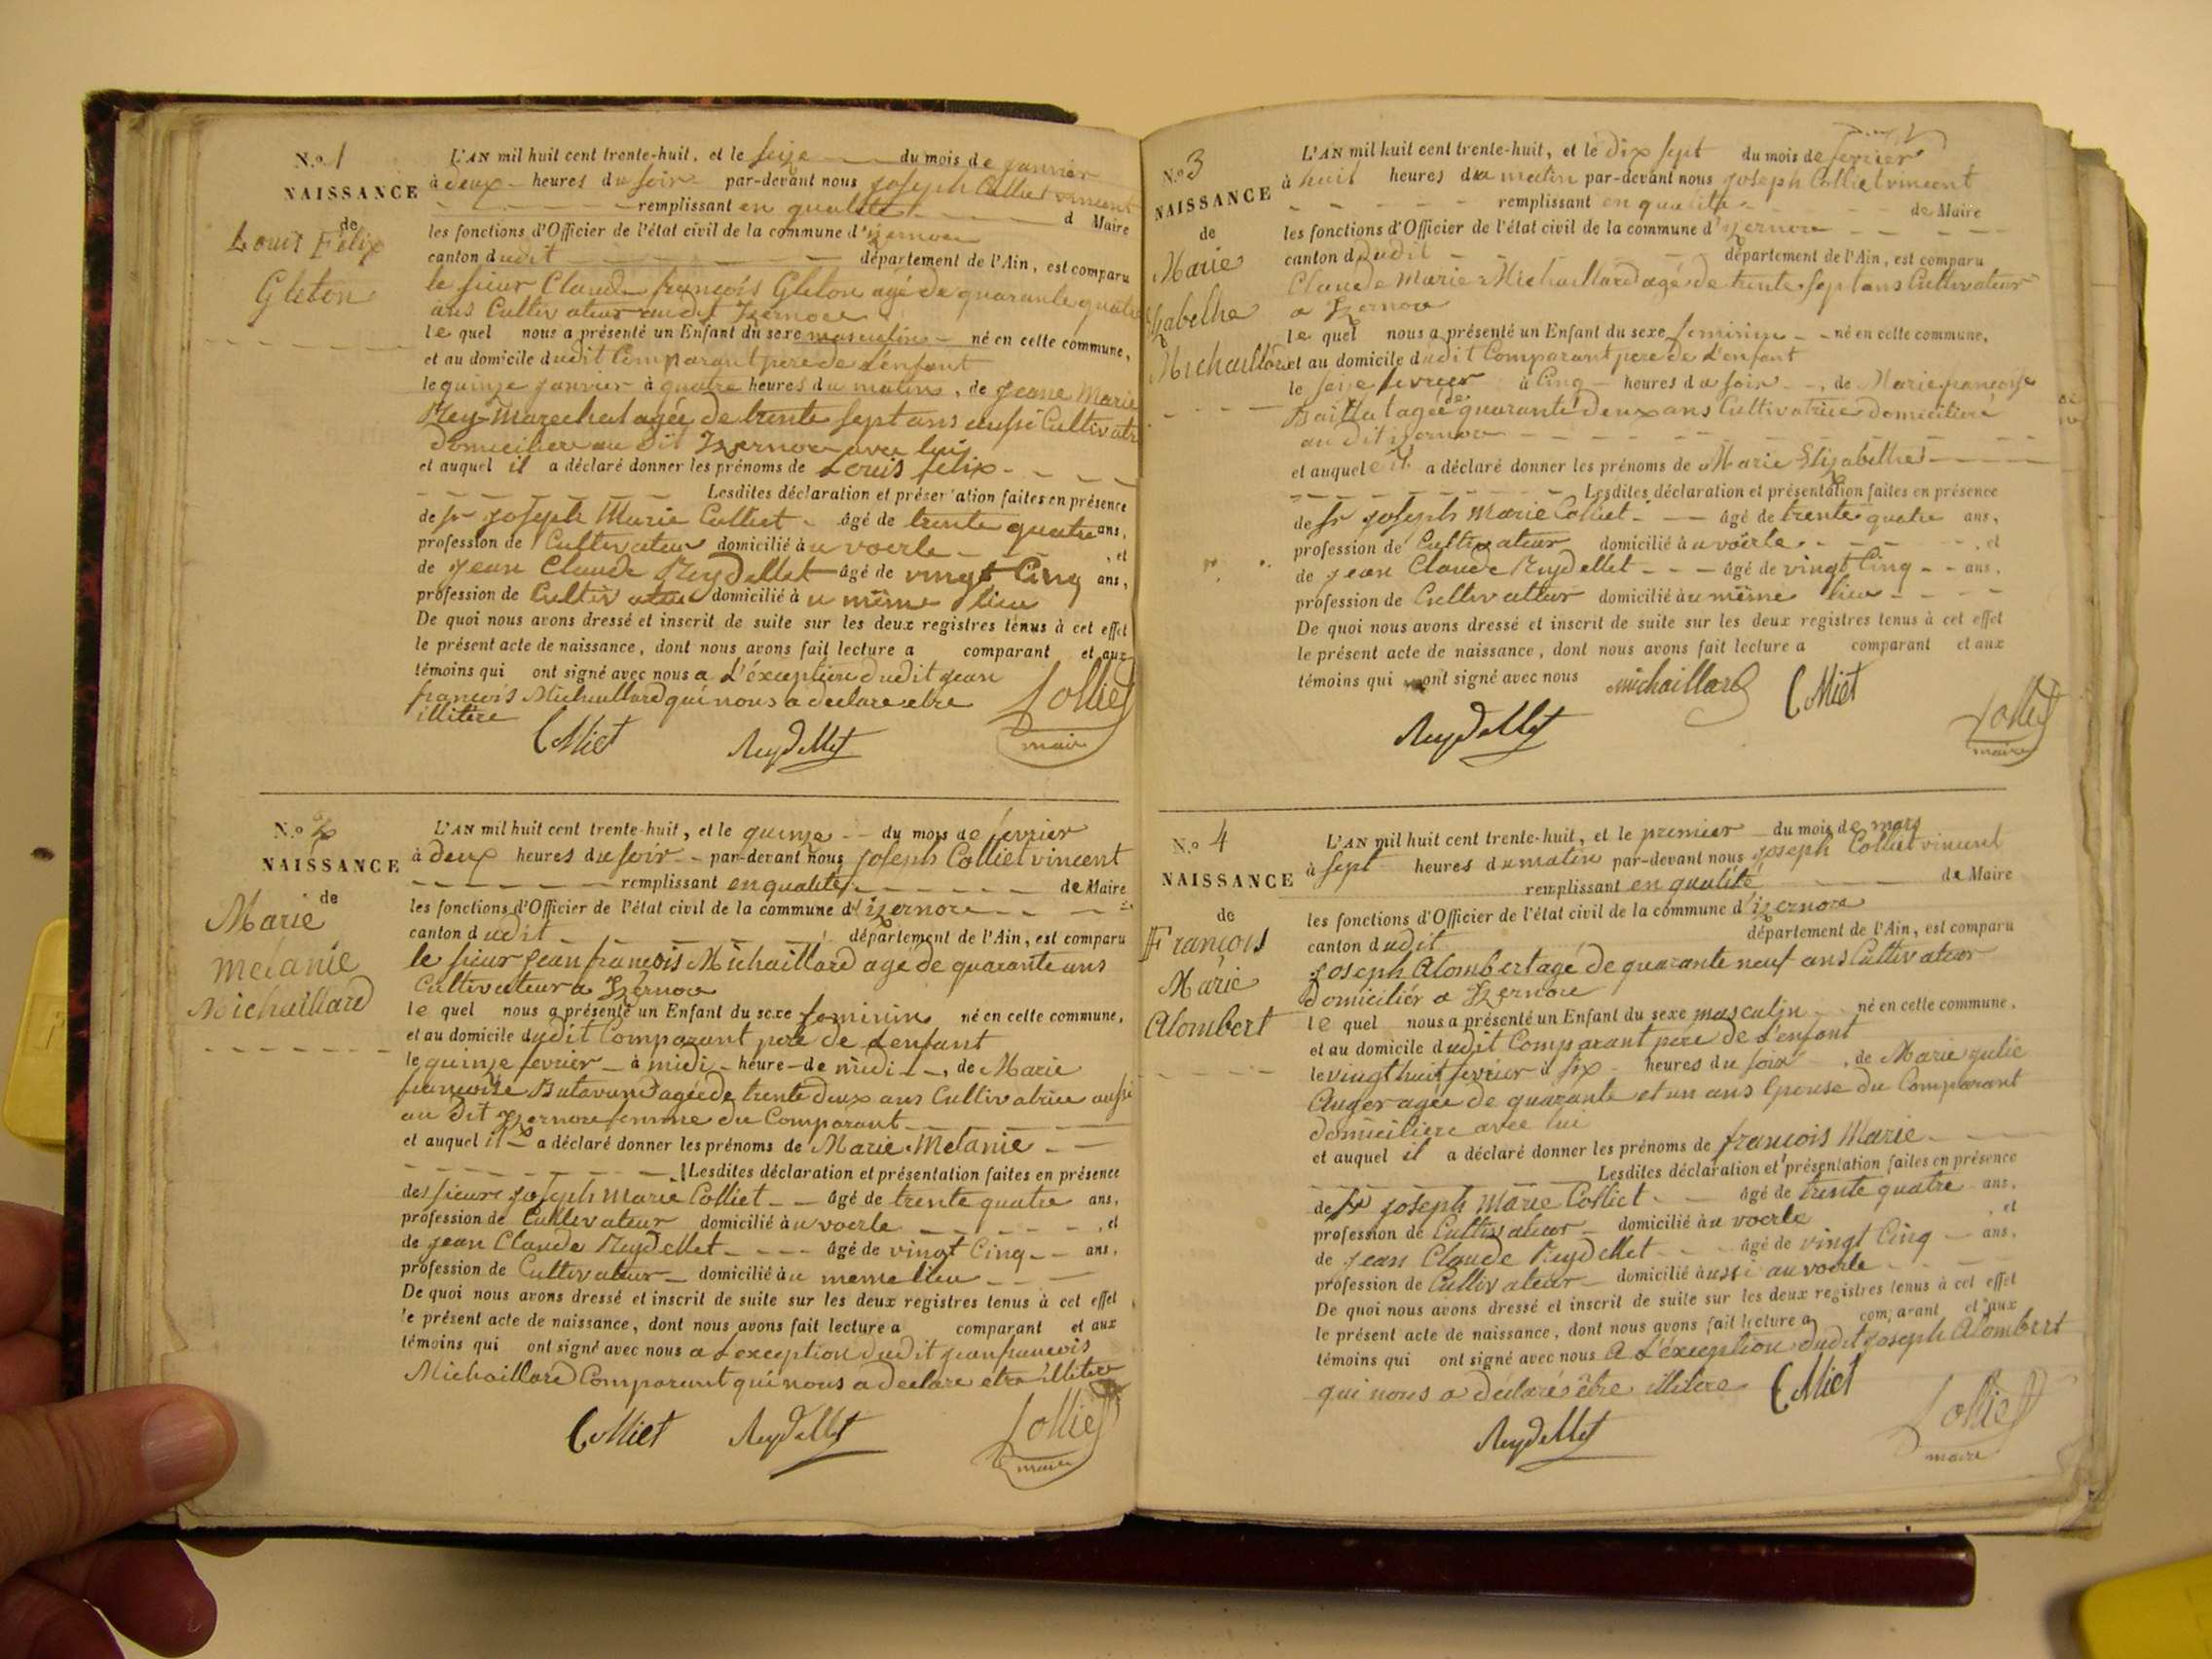 N.o 1
NAISSANCE
de
Louis Félix
Gleton
L'AN mil huit cent trente-huit, et le seize du mois de janvier
à deux heures du soir par-devant nous joseph Colliet vincent
remplissant en qualité d Maire
les fonctions d'Officier de l'état civil de la commune d'izernore
canton dudit département de l'Ain, est comparu
le sieur Claude françois Gleton agé de quarante quatre
ans Cultivateur audit Izernore
le quel nous a présenté un Enfant du sexe masculin né en cette commune,
et au domicile dudit Comparant pere de L'enfant
le quinze janvier à quatre heures du matin, de jeane Marie
Rey-Marechal agée de trente sept ans aussi Cultivatr
domiciliée au dit Izernore avec lui
et auquel il a déclaré donner les prénoms de Louis felix
Lesdites déclaration et présentation faites en présence
de sr joseph Marie Colliet âgé de trente quatre ans,
profession de Cultivateur domicilié à u voerle, et
de jean Claude Reydellet âgé de vingt Cinq ans,
profession de Cultivateur domicilié à u même lieu
De quoi nous avons dressé et inscrit de suite sur les deux registres tenus à cet effet
le présent acte de naissance, dont nous avons fait lecture a comparant et aux
témoins qui ont signé avec nous a L'éxception dudit jean
françois Michaillard qui nous a declare etre
illitere
Colliet Reydellet Colliet
maire
N.o 2
NAISSANCE
de
Marie
Melanie
Michaillard
L'AN mil huit cent trente-huit, et le quinze du mois de fevrier
à deux heures du soir par-devant nous joseph Colliet vincent
remplissant en qualité de Maire
les fonctions d'Officier de l'état civil de la commune d'izernore
canton dudit département de l'Ain, est comparu
le sieur jean françois Michaillard agé de quarante ans
Cultivateur a Izernore
le quel nous a présenté un Enfant du sexe feminin né en cette commune,
et au domicile dudit Comparant pere de L'enfant
le quinze fevrier à midi heure de midi, de Marie
françoise Butavand agée de trente deux ans Cultivatrice aussi
au dit Izernore femme du Comparant
et auquel il a déclaré donner les prénoms de Marie Melanie
Lesdites déclaration et présentation faites en présence
des sieurs joseph Marie Colliet âgé de trente quatre ans,
profession de Cultivateur domicilié à u voerle, et
de jean Claude Reydellet âgé de vingt Cinq ans,
profession de Cultivateur domicilié à u meme lieu
De quoi nous avons dressé et inscrit de suite sur les deux registres tenus à cet effet
le présent acte de naissance, dont nous avons fait lecture a comparant et aux
témoins qui ont signé avec nous a L'exception dudit jean francois
Michaillard Comparant qui nous a declare etre illitere
Colliet Reydellet Colliet
maire
N.o 3
NAISSANCE
de
Marie
Michaillard
L'AN mil huit cent trente-huit, et le dix sept du mois de fevrier
à huit heures du matin par-devant nous joseph Colliet vincent
remplissant en qualité de Maire
les fonctions d'Officier de l'état civil de la commune d'izernore
canton dudit département de l'Ain, est comparu
Claude Marie Michaillard agé de trente sept ans Cultivateur
a Izernore
le quel nous a présenté un Enfant du sexe feminin né en cette commune,
et au domicile dudit Comparant pere de L'enfant
le seize fevrier à Cinq heures du soir, de Marie françoise
agée de quarante deux ans Cultivatrice domiciliée
au dit izernore
et auquel il a déclaré donner les prénoms de Marie Elizabethe
Lesdites déclaration et présentation faites en présence
de sr joseph Marie Colliet âgé de trente quatre ans,
profession de Cultivateur domicilié à u voerle, et
de jean Claude Reydellet âgé de vingt Cinq ans,
profession de Cultivateur domicilié à u même lieu
De quoi nous avons dressé et inscrit de suite sur les deux registres tenus à cet effet
le présent acte de naissance, dont nous avons fait lecture a comparant et aux
témoins qui ont signé avec nous michaillard Colliet
Reydellet Colliet
maire
N.o 4
NAISSANCE
de
François
Marie
Alombert
L'AN mil huit cent trente-huit, et le premier du mois de mars
à sept heures du matin par-devant nous joseph Colliet vincent
remplissant en qualité de Maire
les fonctions d'Officier de l'état civil de la commune d'izernore
canton dudit département de l'Ain, est comparu
joseph Alombert agé de quarante neuf ans Cultivateur
domicilier a Izernore
le quel nous a présenté un Enfant du sexe masculin né en cette commune,
et au domicile dudit Comparant pere de L'enfant
le vingt huit fevrier à six heures du soir, de Marie julie
Auger agée de quarante et un ans Epouse du Comparant
domiciliere avec lui
et auquel il a déclaré donner les prénoms de françois Marie
Lesdites déclaration et présentation faites en présence
de sr joseph Marie Colliet âgé de trente quatre ans,
profession de Cultivateur domicilié à u voerle, et
de jean Claude Reydellet âgé de vingt Cinq ans,
profession de Cultivateur domicilié aussi au voerle
De quoi nous avons dressé et inscrit de suite sur les deux registres tenus à cet effet
le présent acte de naissance, dont nous avons fait lecture a comparant et aux
témoins qui ont signé avec nous A L'éxception dudit joseph Alombert
qui nous a déclaré être illitere Colliet
Reydellet Colliet
maire